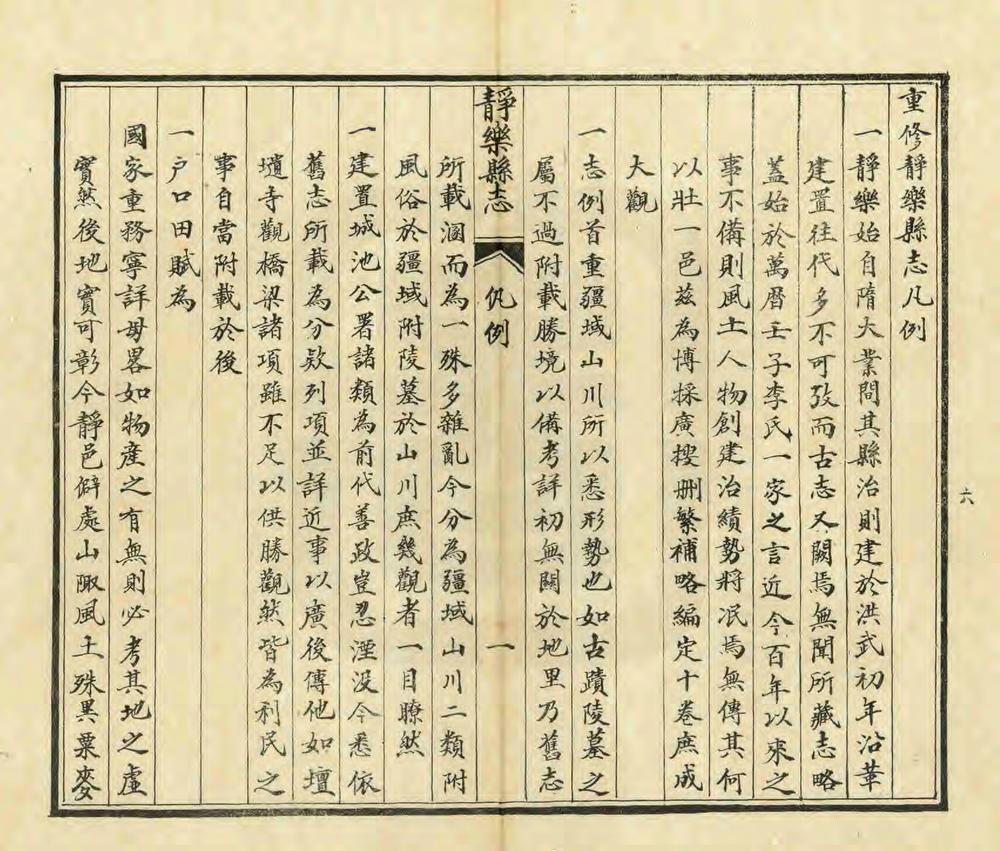 重修靜樂縣志凡例
一靜樂始自隋大業間其縣治則建於洪武初年沿革
建置往代多不可攷而古志又闕焉無聞所藏志略
蓋始於萬曆壬子李氏一家之言近今百年以來之
事不備則風土人物創建治績勢將泯焉無傳其何
以壯一邑茲為博採廣搜删繁補略編定十卷庶成
大觀
一志例首重疆域山川所以悉形勢也如古蹟陵墓之
屬不過附載勝境以備考詳初無關於地里乃舊志
靜樂縣志
凡例
一
所載溷而為一殊多雜亂今分為疆域山川二類附
風俗於疆域附陵墓於山川庶幾觀者一目瞭然
一建置城池公署諸類為前代善政豈忍湮没今悉依
舊志所載為分欵列項並詳近事以廣後傳他如壇
壝寺觀橋梁諸項雖不足以供勝觀然皆為利民之
事自當附載於後
一户口田賦為
國家重務寧詳毋畧如物產之有無則必考其地之虛
實然後地實可彰今靜邑僻處山陬風土殊異粟麥
六